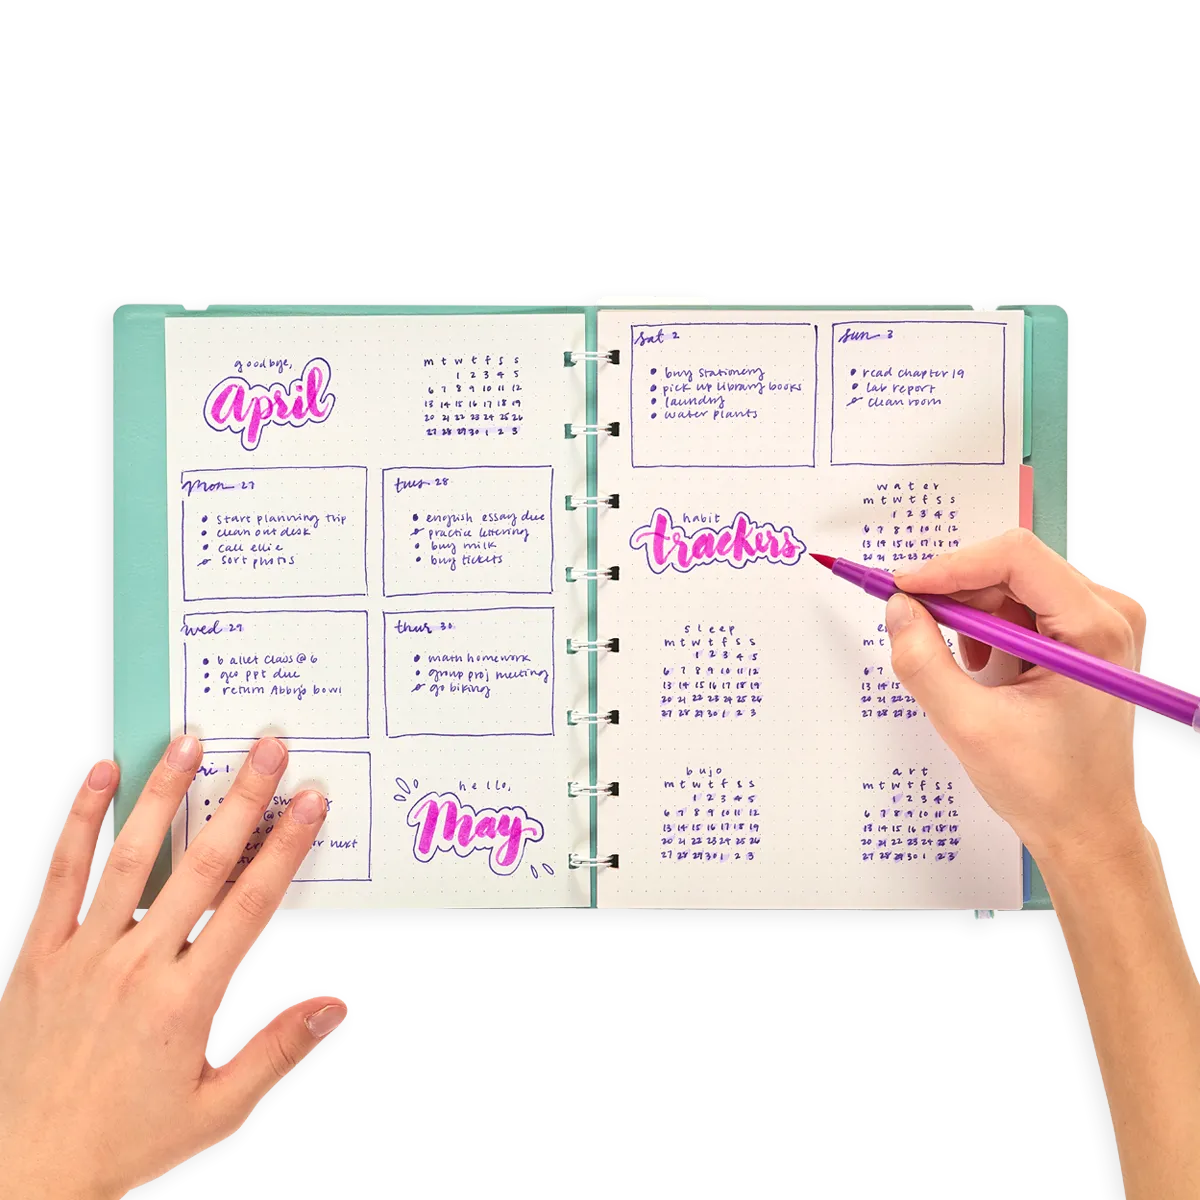 goodbye,
april
m t w t f s s
1 2 3 4 5
6 7 8 9 10 11 12
13 14 15 16 17 18 19
20 21 22 23 24 25 26
27 28 29 30 1 2 3
mon 27
start planning trip
clean out desk
call ellie
sort photos
tues 28
english essay due
practice lettering
buy milk
buy tickets
wed 29
ballet class @ 6
geo ppt due
return Abby's bowl
thur 30
math homework
group proj meeting
go biking
fri 1
next
hello,
May
sat 2
buy stationery
pick up library books
laundry
water plants
sun 3
read chapter 19
lab report
clean room
habit
trackers
water
m t w t f s s
1 2 3 4 5
6 7 8 9 10 11 12
13 14 15 16 17 18 19
20 21 22 23 24
sleep
m t w t f s s
1 2 3 4 5
6 7 8 9 10 11 12
13 14 15 16 17 18 19
20 21 22 23 24 25 26
27 28 29 30 1 2 3
m t w
6 7 8
13 14 15
20 21 22 23
27 28 29 30
bujo
m t w t f s s
1 2 3 4 5
6 7 8 9 10 11 12
13 14 15 16 17 18 19
20 21 22 23 24 25 26
27 28 29 30 1 2 3
art
m t w t f s s
1 2 3 4 5
6 7 8 9 10 11 12
13 14 15 16 17 18 19
20 21 22 23 24 25 26
27 28 29 30 1 2 3